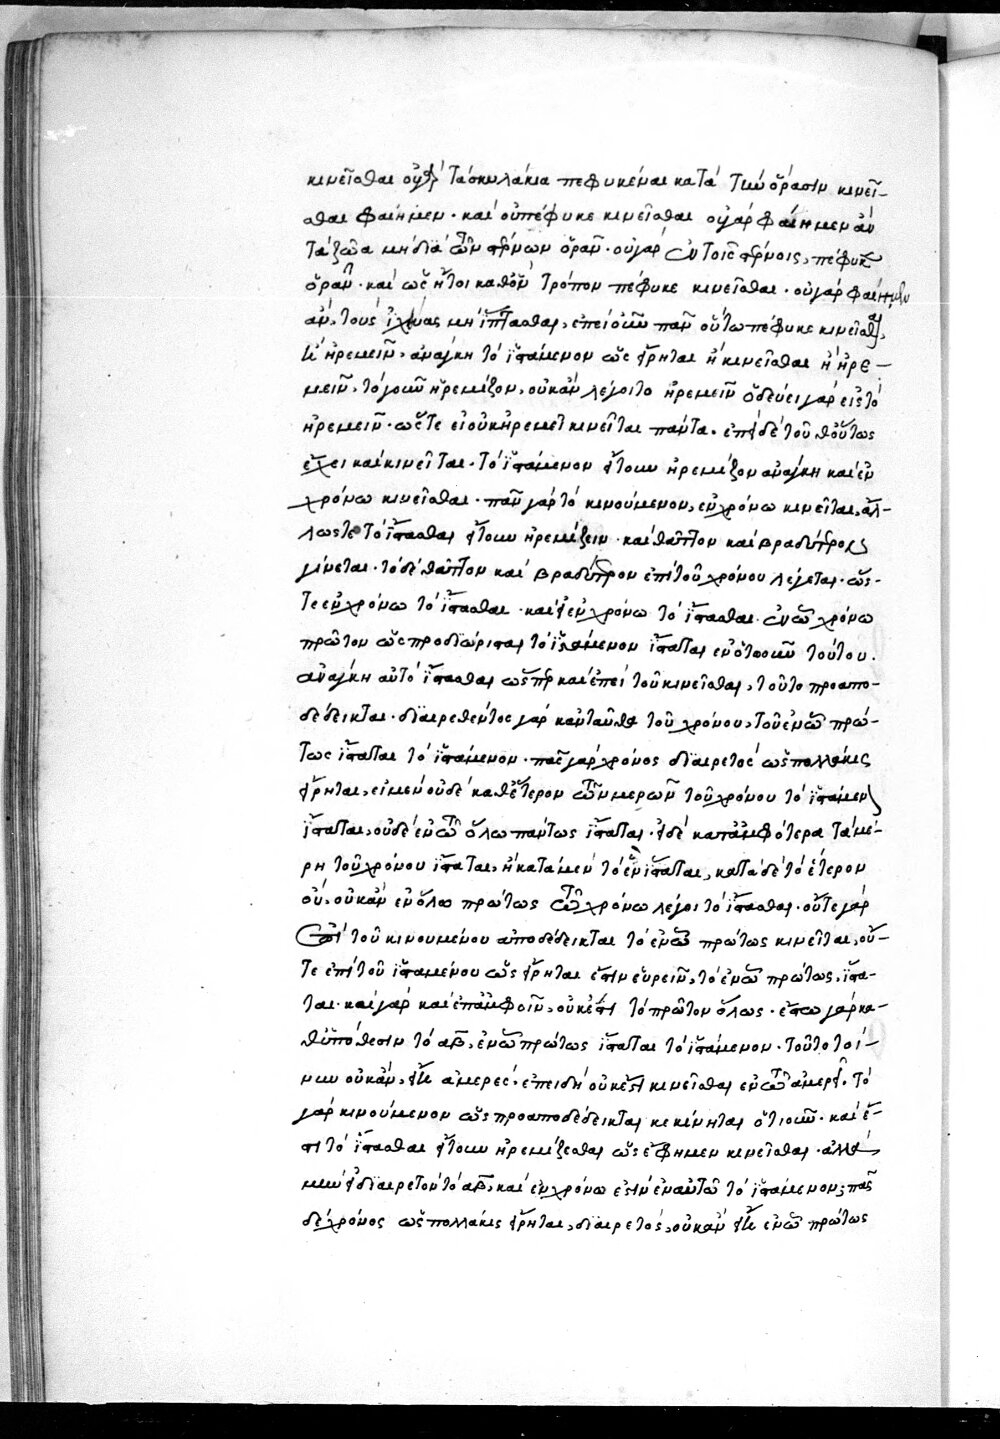 κινεῖσθαι οὐδὲ τὰ σκυλάκια πεφυκέναι κατὰ τὴν ὅρασιν κινεῖ-
σθαι φαίημεν· καὶ οὐ πέφυκε κινεῖσθαι οὐ γὰρ φαίημεν ἂν
τὰ ζῶα μὴ διὰ τῶν στέρνων ὁρᾶν· οὐ γὰρ ἐν τοῖς στέρνοις, πέφυκεν
ὁρᾶν· καὶ ὡς ἤτοι καθ' ὃν τρόπον πέφυκε κινεῖσθαι· οὐ γὰρ φαίημεν
ἂν, τοὺς ἰχθύας μὴ ἵπτασθαι, ἐπεὶ οὖν πᾶν οὕτω πέφυκε κινεῖσθαι,
καὶ ἠρεμεῖν, ἀνάγκη τὸ ἱστάμενον ὡς εἴρηται ἢ κινεῖσθαι ἢ ἠρε-
μεῖν, τὸ γοῦν ἠρεμίζον, οὐκ ἂν λέγοιτο ἠρεμεῖν ὁδεύει γὰρ εἰς τὸ
ἠρεμεῖν· ὥστε εἰ οὐκ ἠρεμεῖ κινεῖται πάντα. ἐπεὶ δὲ τοῦθ' οὕτως
ἔχει καὶ κινεῖται· τὸ ἱστάμενον ἤτουν ἠρεμίζον ἀνάγκη καὶ ἐν
χρόνω κινεῖσθαι· πᾶν γὰρ τὸ κινούμενον, ἐν χρόνω κινεῖται, ἄλ-
λωστε τὸ ἵστασθαι ἤτουν ἠρεμίζειν· καὶ θᾶττον καὶ βραδύτερον
γίνεται· τὸ δὲ θᾶττον καὶ βραδύτερον ἐπὶ τοῦ χρόνου λέγεται· ὥσ-
τε ἐν χρόνω τὸ ἵστασθαι· καὶ εἰ ἐν χρόνω τὸ ἵστασθαι· ἐν ὧ χρόνω
πρῶτον ὡς προσδιώρισται τὸ ἱστάμενον ἵσταται ἐν ὁτωοῦν τούτου.
ἀνάγκη αὐτὸ ἵστασθαι ὥσπερ καὶ ἐπεὶ τοῦ κινεῖσθαι, τοῦτο προαπο-
δέδεικται· διαιρεθέντος γὰρ κἀνταῦθα τοῦ χρόνου, τοῦ ἐν ὧ πρώ-
τως ἵσταται τὸ ἱστάμενον· πᾶς γὰρ χρόνος διαιρετός ὡς πολλάκις
εἴρηται, εἰ μὲν οὐδὲ καθ' ἕτερον τῶν μερῶν τοῦ χρόνου τὸ ἱστάμενον
ἵσταται, οὐδὲ ἐν τῶ ὅλω πάντως ἵσταται· εἰ δὲ κατ' ἀμφότερα τὰ μέ-
ρη τοῦ χρόνου ἵσταται, ἢ κατὰ μὲν τὸ ἓν ἵσταται, κατὰ δὲ τὸ ἕτερον
οὐ, οὐκ ἂν ἐν ὅλω πρώτως τῶ χρόνω λέγοι τὸ ἵστασθαι· οὔτε γὰρ
ἐπὶ τοῦ κινουμένου ἀποδέδεικται τὸ ἐν ὧ πρώτως κινεῖται, οὔ-
τε ἐπὶ τοῦ ἱσταμένου ὡς εἴρηται ἔστιν εὑρεῖν, τὸ ἐν ὧ πρώτως, ἵστα-
ται· καὶ γὰρ καὶ ἐπ' ἀμφοῖν, οὐκ ἔστι τὸ πρῶτον ὅλως· ἔστω γὰρ κα-
θ' ὑπόθεσιν τὸ αβ, ἐν ὧ πρώτως ἵσταται τὸ ἱστάμενον· τοῦτο τοί-
νυν οὐκ ἂν, εἴη ἀμερές· ἐπειδὴ οὐκ ἔστι κινεῖσθαι ἐν τῶ ἀμερεῖ· τὸ
γὰρ κινούμενον ὡς προαποδέδεικται κεκίνηται ὁτιοῦν· καὶ ἔ-
τι τὸ ἵστασθαι ἤτουν ἠρεμίζεσθαι ὡς ἔφημεν κινεῖσθαι· ἀλλὰ
μὴν εἰ διαιρετὸν τὸ αβ, καὶ ἐν χρόνω ἐστὶν ἐν αὐτῶ τὸ ἱστάμενον, πᾶς
δὲ χρόνος ὡς πολλάκις εἴρηται, διαιρετός, οὐκ ἂν εἴη ἐν ὧ πρώτως